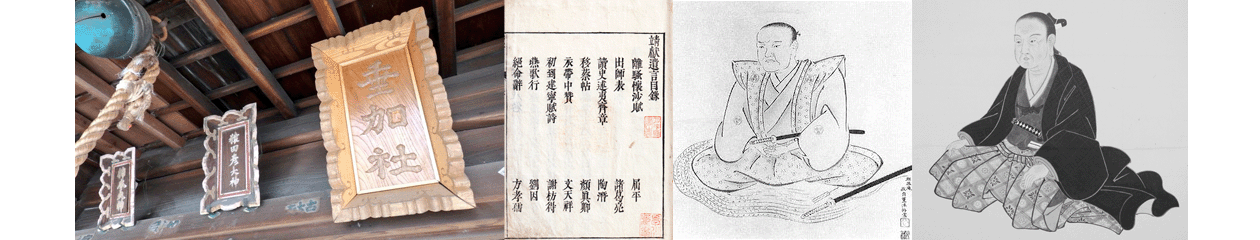 垂加社
猿田彦大神
靖獻遺言目錄
離騷懷沙賦 屈平
出師表 諸葛亮
讀史述夷齊章 陶潛
移蔡帖 顏真卿
衣帶中贊 文天祥
初到建寧賦詩 謝枋得
燕歌行 劉因
絕命辭 方孝孺